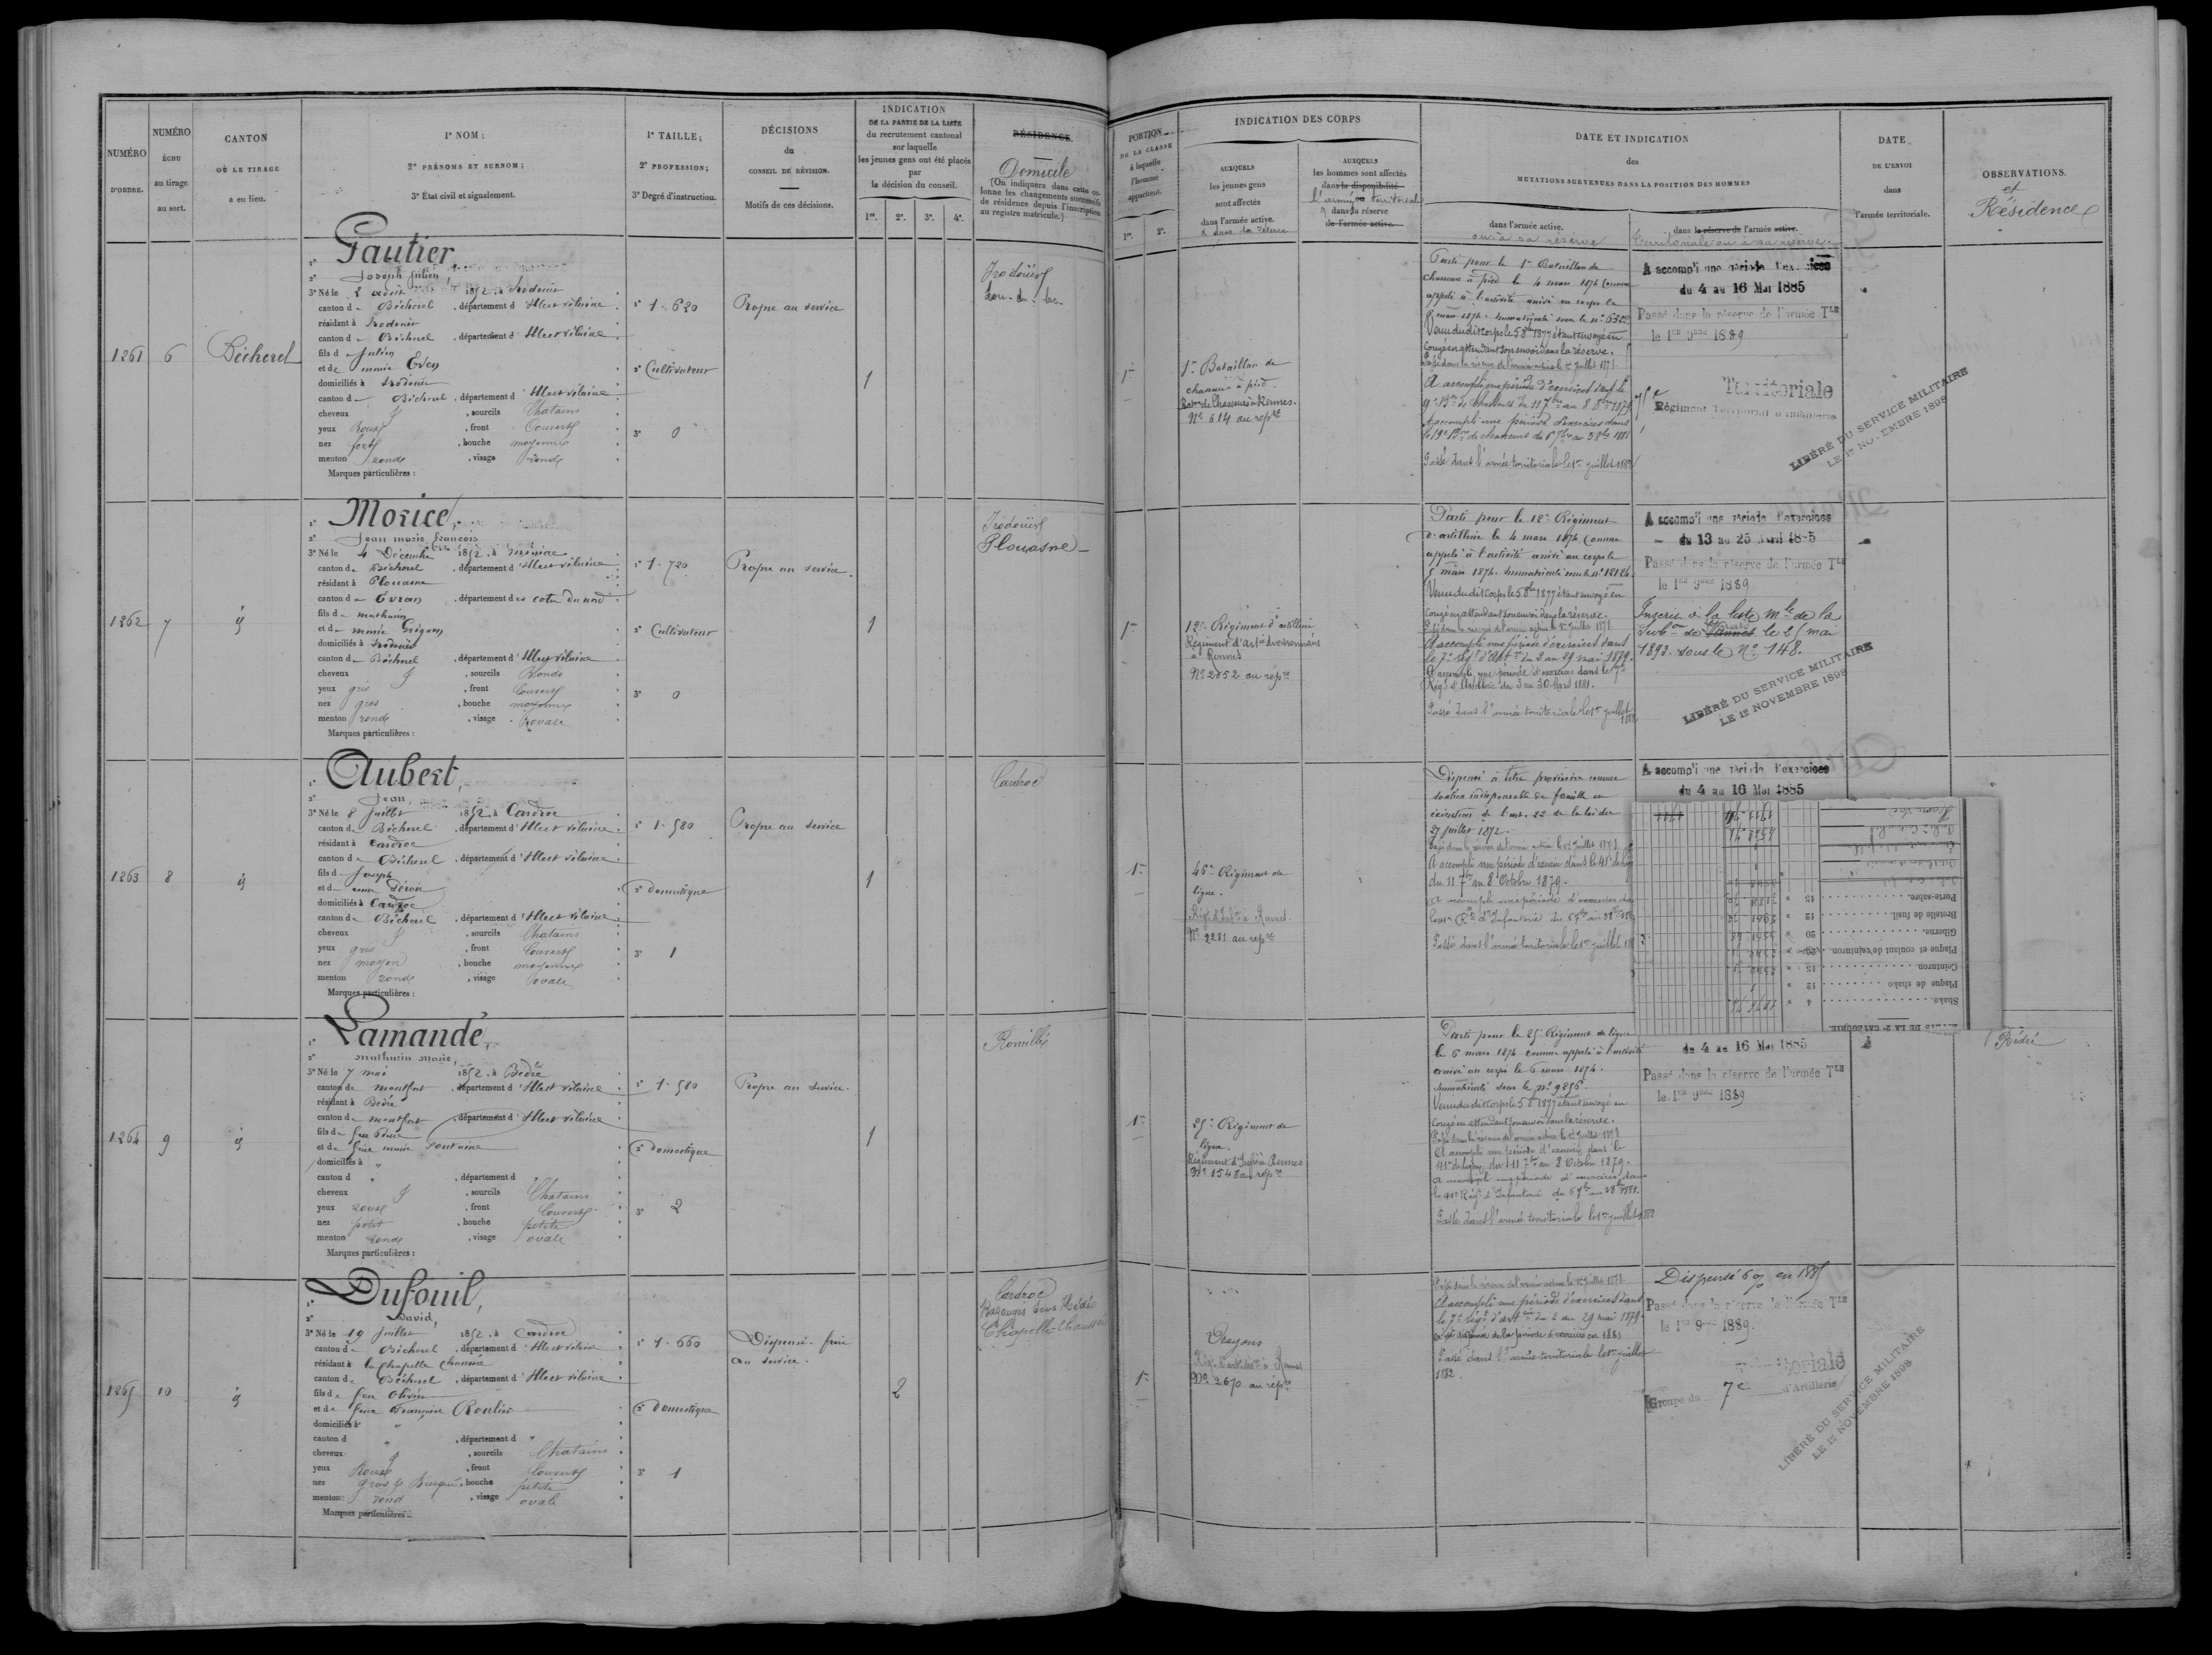 NUMÉRO
D'ORDRE.
NUMÉRO
ÉCHU
au tirage
au sort.
CANTON
OÙ LE TIRAGE
a eu lieu.
1° NOM;
2° PRÉNOMS ET SURNOM;
3° État civil et signalement.
1° TAILLE;
2° PROFESSION;
3° Degré d'instruction.
DÉCISIONS
du
CONSEIL DE RÉVISION.
Motifs de ces décisions.
INDICATION
DE LA PARTIE DE LA LISTE
du recrutement cantonal
sur laquelle
les jeunes gens ont été placés
par
la décision du conseil.
1re. 2e. 3e. 4e.
RÉSIDENCE.
Domicile
(On indiquera dans cette co-
lonne les changements successifs
de résidence depuis l'inscription
au registre matricule.)
PORTION
DE LA CLASSE
à laquelle
l'homme
appartient.
1re. 2e.
INDICATION DES CORPS
AUXQUELS
les jeunes gens
sont affectés
dans l'armée active.
& dans la réserve
AUXQUELS
les hommes sont affectés
dans la disponibilité
l'armée territoriale
& dans la réserve
de l'armée active.
DATE ET INDICATION
des
MUTATIONS SURVENUES DANS LA POSITION DES HOMMES
dans l'armée active.
ou à sa réserve
dans la réserve de l'armée active.
territoriale ou à sa réserve.
DATE
DE L'ENVOI
dans
l'armée territoriale.
OBSERVATIONS.
et
Résidence
1261
6
Bécherel
1° Gautier,
2° Joseph Julien
3° Né le 2 août 1852, à Irodouer
canton de Bécherel, département d'Ille et vilaine
résidant à Irodouer
canton de Bécherel, département d'Ille et vilaine
fils de Julien
et de marie Even
domiciliés à Irodouer
canton de Bécherel, département d'Ille et vilaine
cheveux, sourcils Chatains
yeux Roux, front Couvert
nez fort, bouche moyenne
menton rond, visage rond
Marques particulières :
1° 1.620
2° Cultivateur
3° 0
Propre au service
1
Irodouër
Lou-du-lac
1re
1er Bataillon de
chasseurs à pied
Baton de Chasseurs à Rennes.
No 614 au repre
Parti pour le 1er Bataillon de
chasseurs à pied le 4 mars 1874 comme
appelé à l'activité arrivé au corps le
Venu dudit Corps le 5 8bre 1877 étant envoyé en
Congé en attendant son envoi dans la réserve.
Passé dans la réserve de l'armée active le 1er Juillet 1878.
A accompli une période d'exercices dans le
A accompli une période d'exercices dans
le 19e Bon de chasseurs du 6 7bre au 3 8bre 1881
Passé dans l'armée territoriale le 1er juillet 1882
A accompli une période d'exercices
du 4 au 16 Mai 1885
Passé dans la réserve de l'armée Tle
le 1er 9bre 1889
75e
Territoriale
Régiment Territorial d'Infanterie
LIBÉRÉ DU SERVICE MILITAIRE
LE 1er NOVEMBRE 1898
1262
7
1° Morice,
2° Jean marie françois
3° Né le 4 Décembre 1852, à miniac
canton de Bécherel, département d'Ille et vilaine
résidant à Plouasne
canton de Evran, département des cotes du nord
fils de mathurin
et de marie Grignon
domiciliés à Irodouer
canton de Bécherel, département d'Ille et vilaine
cheveux, sourcils Blonds
yeux gris, front Couvert
nez gros, bouche moyenne
menton rond, visage ovale
Marques particulières :
1° 1.720
2° Cultivateur
3° 0
Propre au service.
1
Irodouër
Plouasne
1re
12e Régiment d'artillerie
Régiment d'Artie divisionnaire
à Rennes
No 2052 au répre
Parti pour le 12e Régiment
d'artillerie le 4 mars 1874 comme
appelé à l'activité arrivé au corps le
5 mars 1874. Immatriculé sous le No 12124.
Venu dudit Corps le 5 8bre 1877 étant envoyé en
Congé en attendant son envoi dans la réserve.
Passé dans la réserve de l'armée active le 1er Juillet 1878
A accompli une période d'exercices dans
le 7e régt d'Artrie du 2 au 29 mai 1879.
A accompli une période d'exercices dans le 7e
Régt d'Artillerie du 3 au 30 Mars 1881.
Passé dans l'armée territoriale le 1er juillet
1882
A accompli une période d'exercices
du 13 au 25 Avril 1885
Passé dans la réserve de l'armée Tle
le 1er 9bre 1889
Inscrit à la liste mle de la
Subon de Vannes le 25 mai
1893 sous le No 148.
LIBÉRÉ DU SERVICE MILITAIRE
LE 1er NOVEMBRE 1898
1263
8
1° Aubert,
2° Jean,
3° Né le 8 Juillet 1852, à Cardroc
canton de Bécherel, département d'Ille et vilaine
résidant à Cardroc
canton de Bécherel, département d'Ille et vilaine
fils de Joseph
domiciliés à Cardroc
canton de Bécherel, département d'Ille et vilaine
cheveux, sourcils Chatains
yeux gris, front Couvert
nez moyen, bouche moyenne
menton rond, visage ovale
Marques particulières :
1° 1.580
2° Domestique
3° 1
Propre au service
1
Cardroc
1re
46e Régiment de
ligne.
Régt d'Infie à Rennes
No 2281 au repre
Dispensé à titre provisoire comme
soutien indispensable de famille en
exécution de l'art. 22 de la loi du
27 juillet 1872.
Passé dans la réserve de l'armée active le 1er Juillet 1878.
A accompli une période d'exercices dans le 41e de ligne
du 11 7bre au 8 Octobre 1879.
A accompli une période d'exercices dans
Passé dans l'armée territoriale le 1er juillet
A accompli une période d'exercices
du 4 au 16 Mai 1885
Shako 4
Plaque de shako 12
Ceinturon 15
Plaque et coulant de ceinturon 20
Giberne 20
Bretelle de fusil 12
Porte-sabre 15
1264
9
1° Lamandé,
2° Mathurin Marie,
3° Né le 7 mai 1852, à Bédée
canton de Montfort, département d'Ille et vilaine
résidant à Bédée
canton de Montfort, département d'Ille et vilaine
fils de feu Pierre
et de feue marie Fontaine
domiciliés à "
canton d ", département d "
cheveux, sourcils Chatains
yeux roux, front Couvert
nez petit, bouche petite
menton rond, visage ovale
Marques particulières :
1° 1.580
2° Domestique
3° 2
Propre au service.
1
Romillé
1re
25e Régiment de
ligne.
Régiment d'Infie à Rennes
No 1548 au repre
Parti pour le 25e Régiment de ligne
le 6 mars 1874 comme appelé à l'activité
arrivé au corps le 6 mars 1874.
Immatriculé sous le No 9856.
Venu dudit Corps le 5 8bre 1877 étant envoyé en
Congé en attendant son envoi dans la réserve.
Passé dans la réserve de l'armée active le 1er Juillet 1878.
A accompli une période d'exercices dans le
41e de ligne du 11 7bre au 8 Octobre 1879.
A accompli une période d'exercices dans
le 41e Régt d'Infanterie du 6 7bre au 3 8bre 1881.
Passé dans l'armée territoriale le 1er juillet 1882
du 4 au 16 Mai 1885
Passé dans la réserve de l'armée Tle
le 1er 9bre 1889
Bédée
1265
10
1° Dufouil,
2° David,
3° Né le 19 Juillet 1852, à Cardroc
canton de Bécherel, département d'Ille et vilaine
résidant à la Chapelle Chaussée
canton de Bécherel, département d'Ille et vilaine
fils de feu Olivier
et de feue Françoise Roulier
domiciliés à "
canton d ", département d "
cheveux, sourcils Chatains
yeux Roux, front Couvert
nez gros, bouche petite
menton rond, visage ovale
Marques particulières :
1° 1.660
2° Domestique
3° 1
Dispensé. frère
au service.
2
Cardroc
Bazouges sous Hédé
Chapelle-Chaussée
1re
Dragons
No 2670 au répre
Passé dans la réserve de l'armée active le 1er Juillet 1878.
A accompli une période d'exercices dans
le 7e régt d'Artrie du 2 au 29 mai 1879.
dispensé de la période d'exercices en 1881
Passé dans l'armée territoriale le 1er juillet
1882.
Dispensé 6% en 1885
Passé dans la réserve de l'armée Tle
le 1er 9bre 1889.
Territoriale
Groupe du 7e d'Artillerie
LIBÉRÉ DU SERVICE MILITAIRE
LE 1er NOVEMBRE 1898